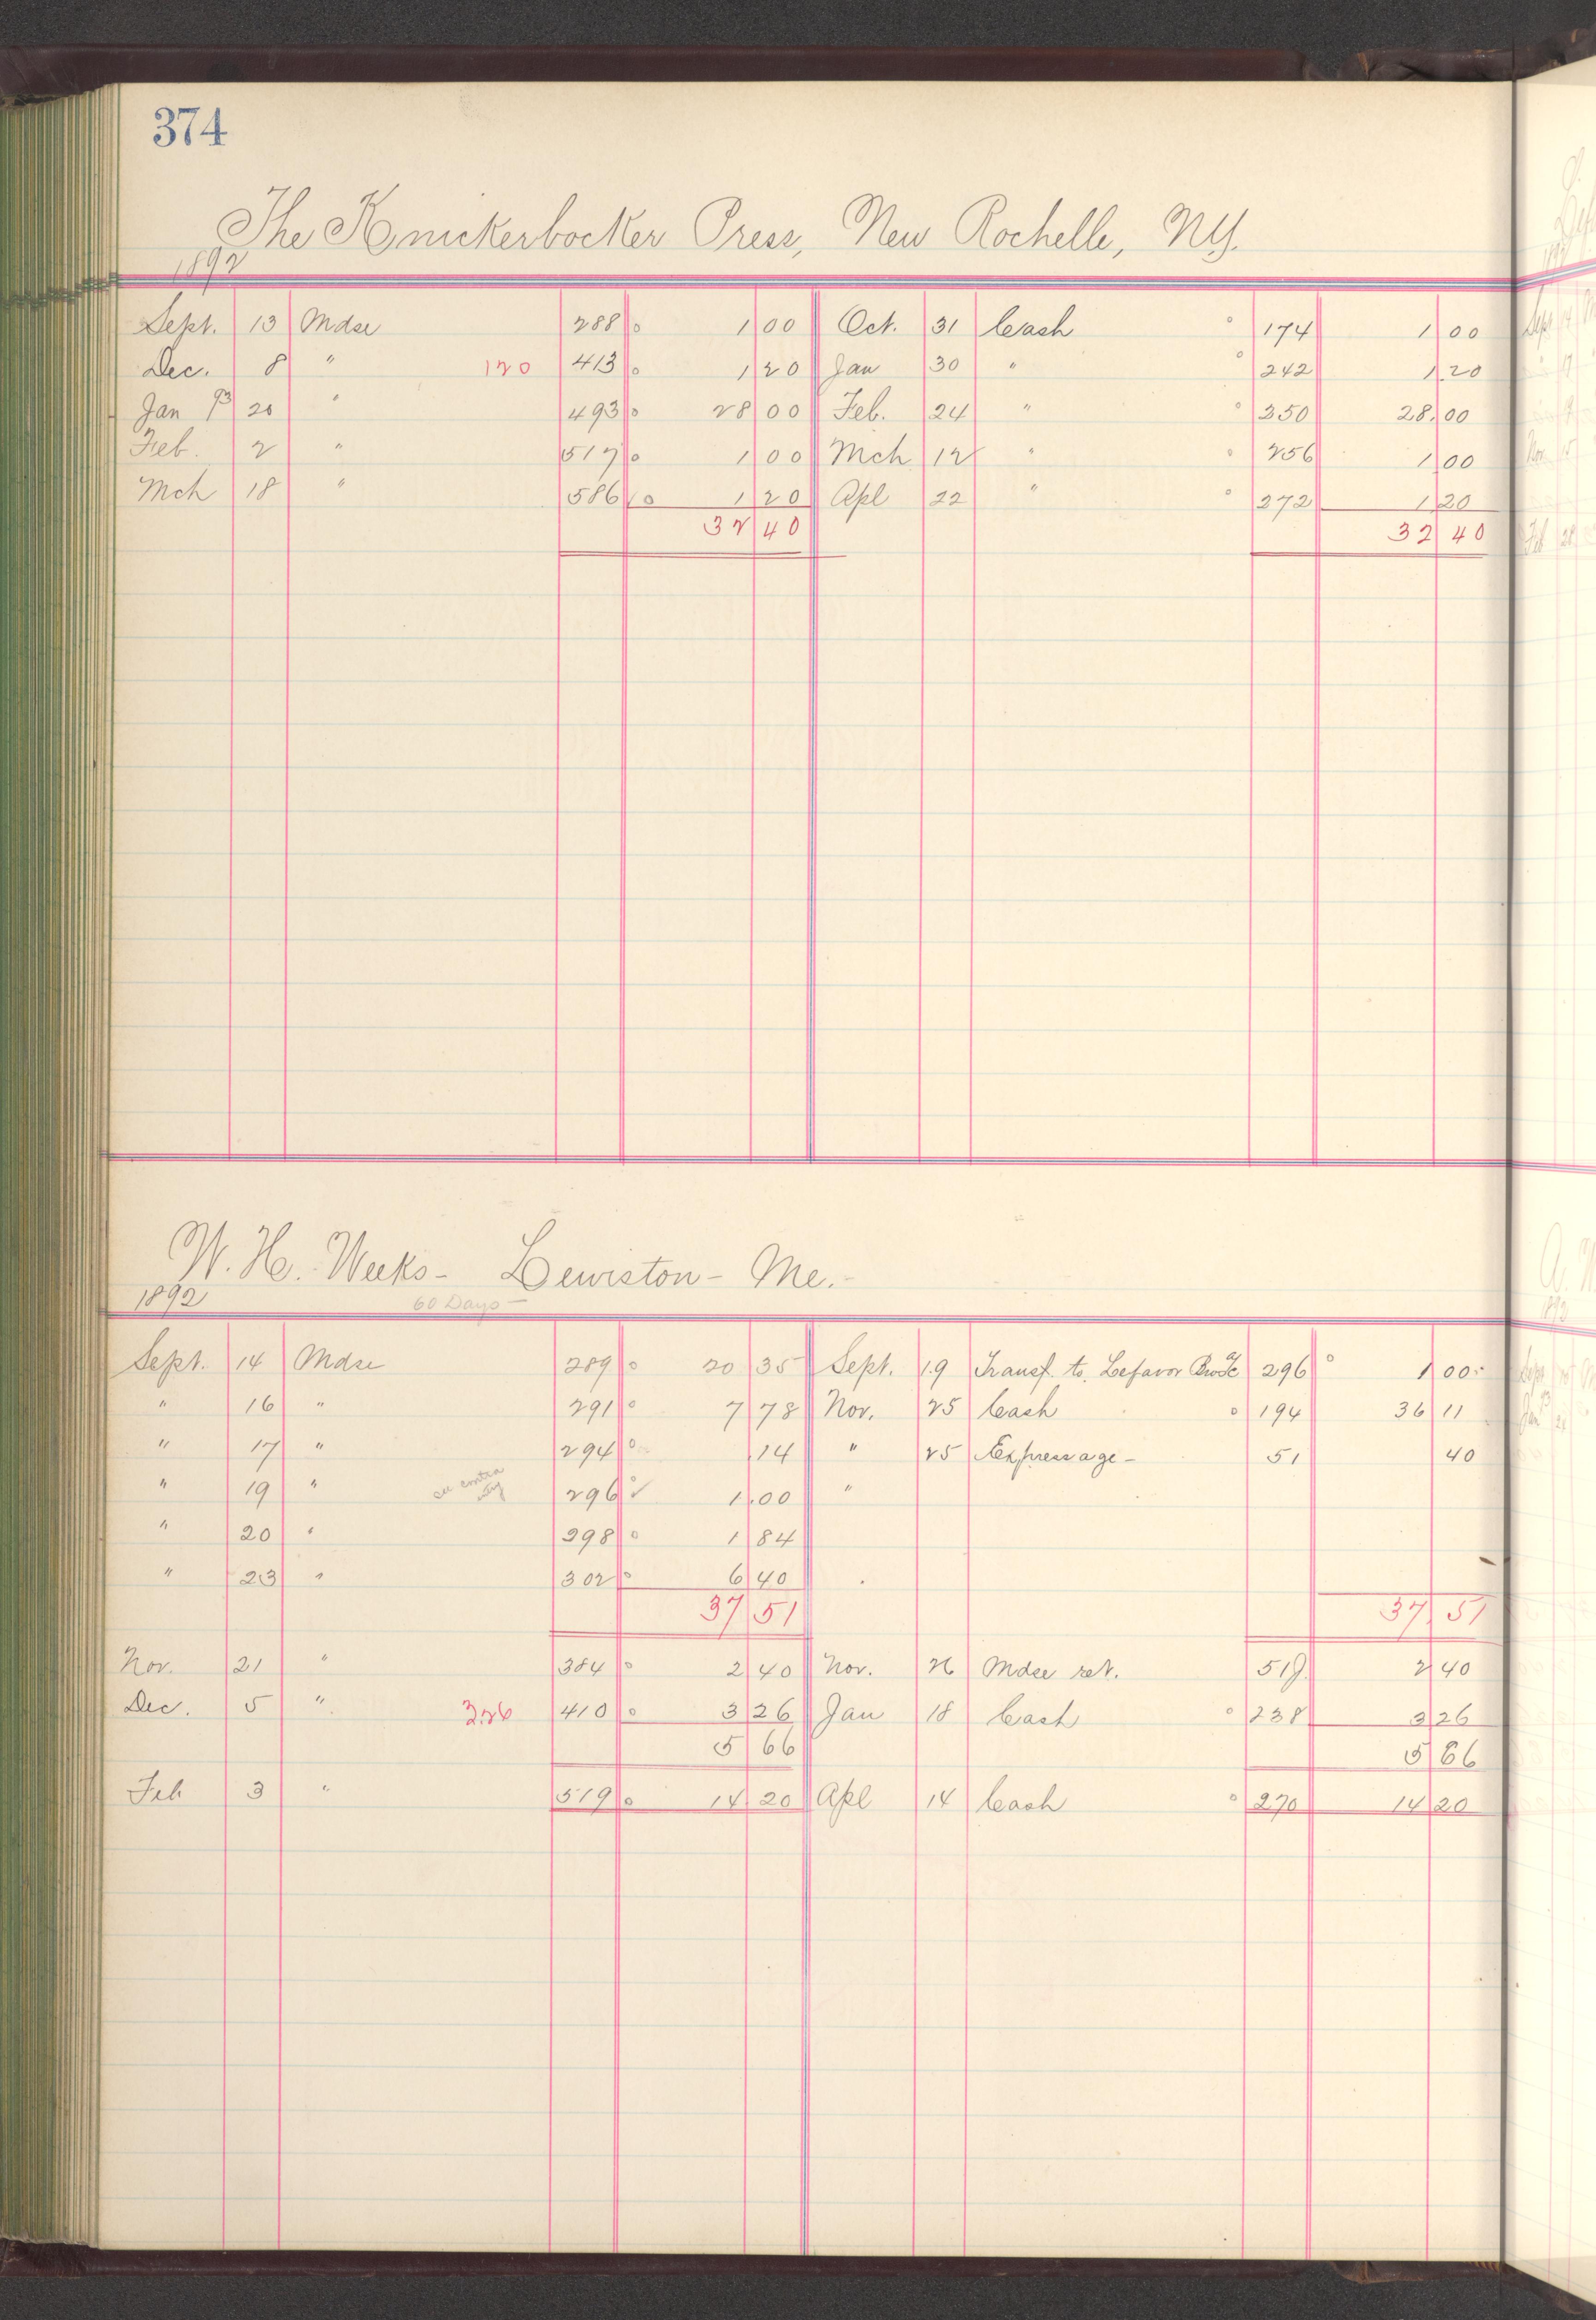 374
The Knickerbocker Press, New Rochelle, NY.
1892
Sept. 13 Mdse 288 0 1 00 Oct. 31 Cash 0 174 1 00
Dec. 8 " 120 413 0 1 20 Jan 30 " 0 242 1.20
Jan 93 20 " 493 0 28 00 Feb. 24 " 0 250 28.00
Feb. 2 " 517 0 1 00 Mch 12 " 0 256 1 00
Mch 18 " 586 0 1 20 Apl 22 " 0 272 1 20
32 40 32 40
W. H. Weeks - Lewiston - Me. -
1892 60 Days -
Sept. 14 Mdse 289 0 20 35 Sept. 19 Transf. to. Lefavor 296 0 1 00
" 16 " 291 0 7 78 Nov. 25 Cash 0 194 36 11
" 17 " 294 0 14 " 25 Expressage - 51 40
" 19 " see contra 296 ✓ 1.00 "
" 20 " 298 0 1 84
" 23 " 302 0 6 40
37 51 37 51
Nov. 21 " 384 0 2 40 Nov. 26 Mdse ret. 519 2 40
Dec. 5 " 3.26 410 0 3 26 Jan 18 Cash 0 238 3 26
5 66 5 66
Feb 3 " 519 0 14 20 Apl 14 Cash 0 270 14 20